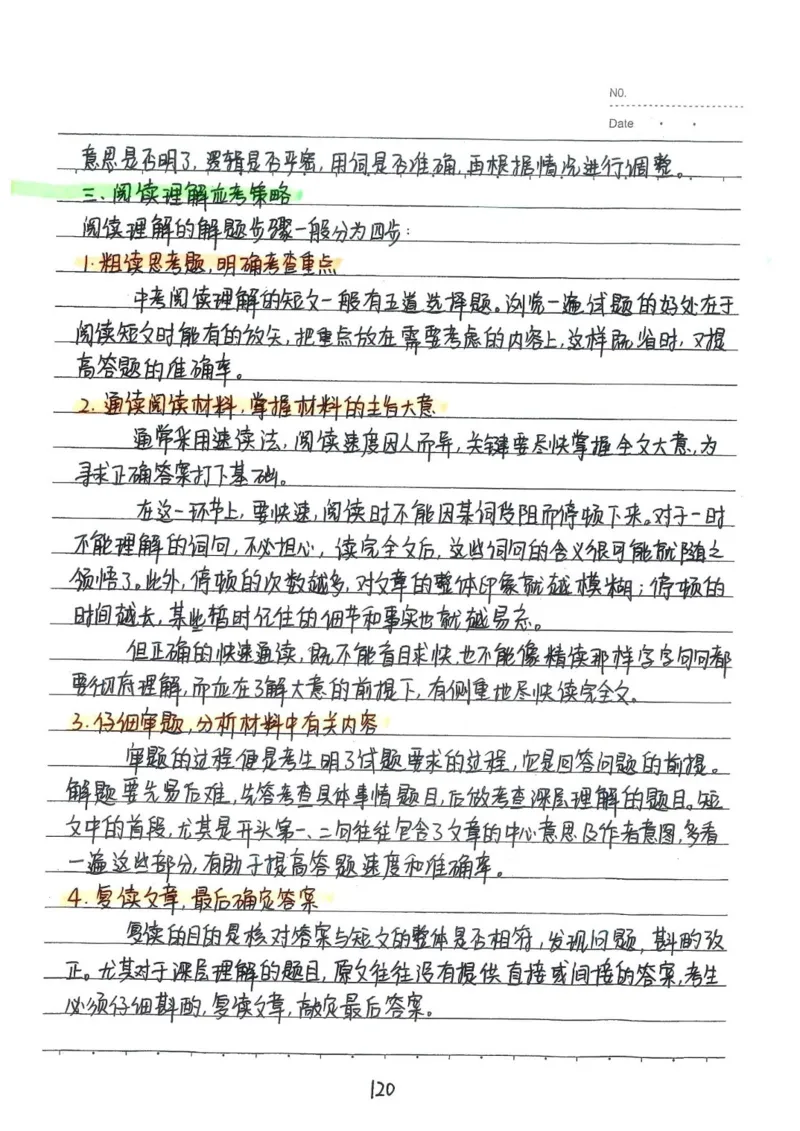 NO.
Date
意思是否明了,逻辑是否严密,用词是否准确,再根据情况进行调整。
三、阅读理解应考策略
阅读理解的解题步骤一般分为四步:
1.粗读思考题,明确考查重点
中考阅读理解的短文一般有五道选择题。浏览一遍试题的好处在于
阅读短文时能有的放矢,把重点放在需要考虑的内容上,这样既省时,又提
高答题的准确率。
2.通读阅读材料,掌握材料的主旨大意
通常采用速读法,阅读速度因人而异,关键要尽快掌握全文大意,为
寻求正确答案打下基础。
在这一环节上,要快速,阅读时不能因某词受阻而停顿下来。对于一时
不能理解的词句,不必担心,读完全文后,这些词句的含义很可能就随之
领悟了。此外,停顿的次数越多,对文章的整体印象就越模糊;停顿的
时间越长,某些暂时记住的细节和事实也就越易忘。
但正确的快速通读,既不能盲目求快,也不能像精读那样字字句句都
要彻底理解,而应在了解大意的前提下,有侧重地尽快读完全文。
3.仔细审题,分析材料中有关内容
审题的过程便是考生明了试题要求的过程,它是回答问题的前提。
解题要先易后难,先答考查具体事情题目,后做考查深层理解的题目。短
文中的首段,尤其是开头第一、二句往往包含了文章的中心意思及作者意图,多看
一遍这些部分,有助于提高答题速度和准确率。
4.复读文章,最后确定答案
复读的目的是核对答案与短文的整体是否相符,发现问题,斟酌改
正。尤其对于深层理解的题目,原文往往没有提供直接或间接的答案,考生
必须仔细斟酌,复读文章,敲定最后答案。
120